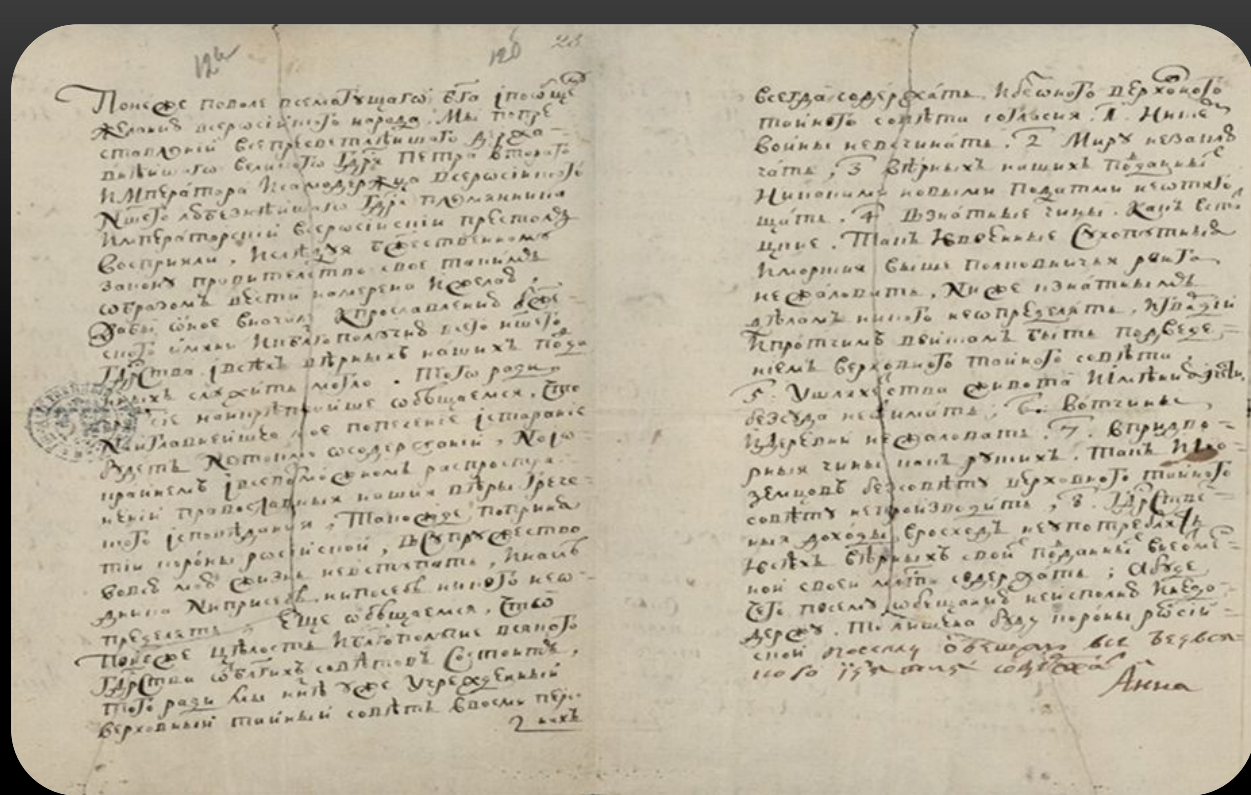 126 23
Понеже поволе всемогущагω бга іпоωбще
желанию всерωсіиского народа. Мы попре
ставлениі всепресветлѣишаго держа-
внѣишаго великаго Гдря Петра втораго
Императора Исамодержца всерωсіиского
Nшего любезнѣишаго Гдря племянника
Императорскиі всерωсіискіи престолъ
восприяли. Ислѣдуя бжественному
закону правителство свое такимъ
ωбразомъ вести намерена Ижелаю.
Дабы ωное вначалѣ кпрославлению бже-
ского імяни Икблагополучию всего ншего
Гдрства івсѣхъ вѣрныхъ нашихъ подда
нныхъ служить могло. Того ради,
чрезъ сие наикрѣпчаише ωбѣщаемся, Что
Nаиглавнеишее мое попечение істарание
будетъ Nетокмо ωсодержаниі, Nоіω
краинемъ івсевозможномъ распростра-
нениі православных нашия вѣры Грече-
ского ісповѣдания, Такожде поприня
тиі короны рωсіискои, Всупружество
вовсю мою жизнь невступать, Инаслѣ
дника Nиприсебѣ нипосебѣ никого неω-
пределять. Еще ωбѣщаемся, Что
Понеже цѣлость Иблагополучие всякого
Гдрства ωблагихъ совѣтовъ Состоитъ,
Того ради Мы ннѣ уже Учрежденныи
верховныи таиныи совѣтъ ввосми перс-
2 нахъ
всегда содержать. Ибезоного верховного
таиного совѣта согласия. 1. Nикѣ
воины невсчинать. 2 Миру незаклю
чать, 3 вѣрныхъ нашихъ подданныѣ
Никакими новыми податми неωтяго
щать. 4 Взнатные чины. Какъ вста
цкие. Такъ Ивоенные Сухопутныя
Иморския выше полковничья ранга
нежаловать, Nиже кзнатнымъ
дѣламъ никого неωпределять. Игвардиі
Ипротчимъ воискамъ быть подведе-
ниемъ верховного таиного совѣта
5. Ушляхетства живота Иімѣния Ичести
безсуда неωтимать, 6. Вотчины
Идеревни нежаловать. 7. впридво-
рныя чины какъ руских. Такъ Иіно-
земцовъ безсовѣту верховного таиного
совѣта непроизводить, 8. Гдрстве-
ныя доходы врозходъ неупотреблять
Ивсѣхъ вѣрныхъ своиѣ подданныѣ внеωтмѣ-
нои своеи млсти содержать; Абуде
чего посему ωбещанию неисполню Инедо-
держу. То лишена буду короны рωсіи-
скои Посему обещаю все безвся-
кого изъятия содержать
Анна